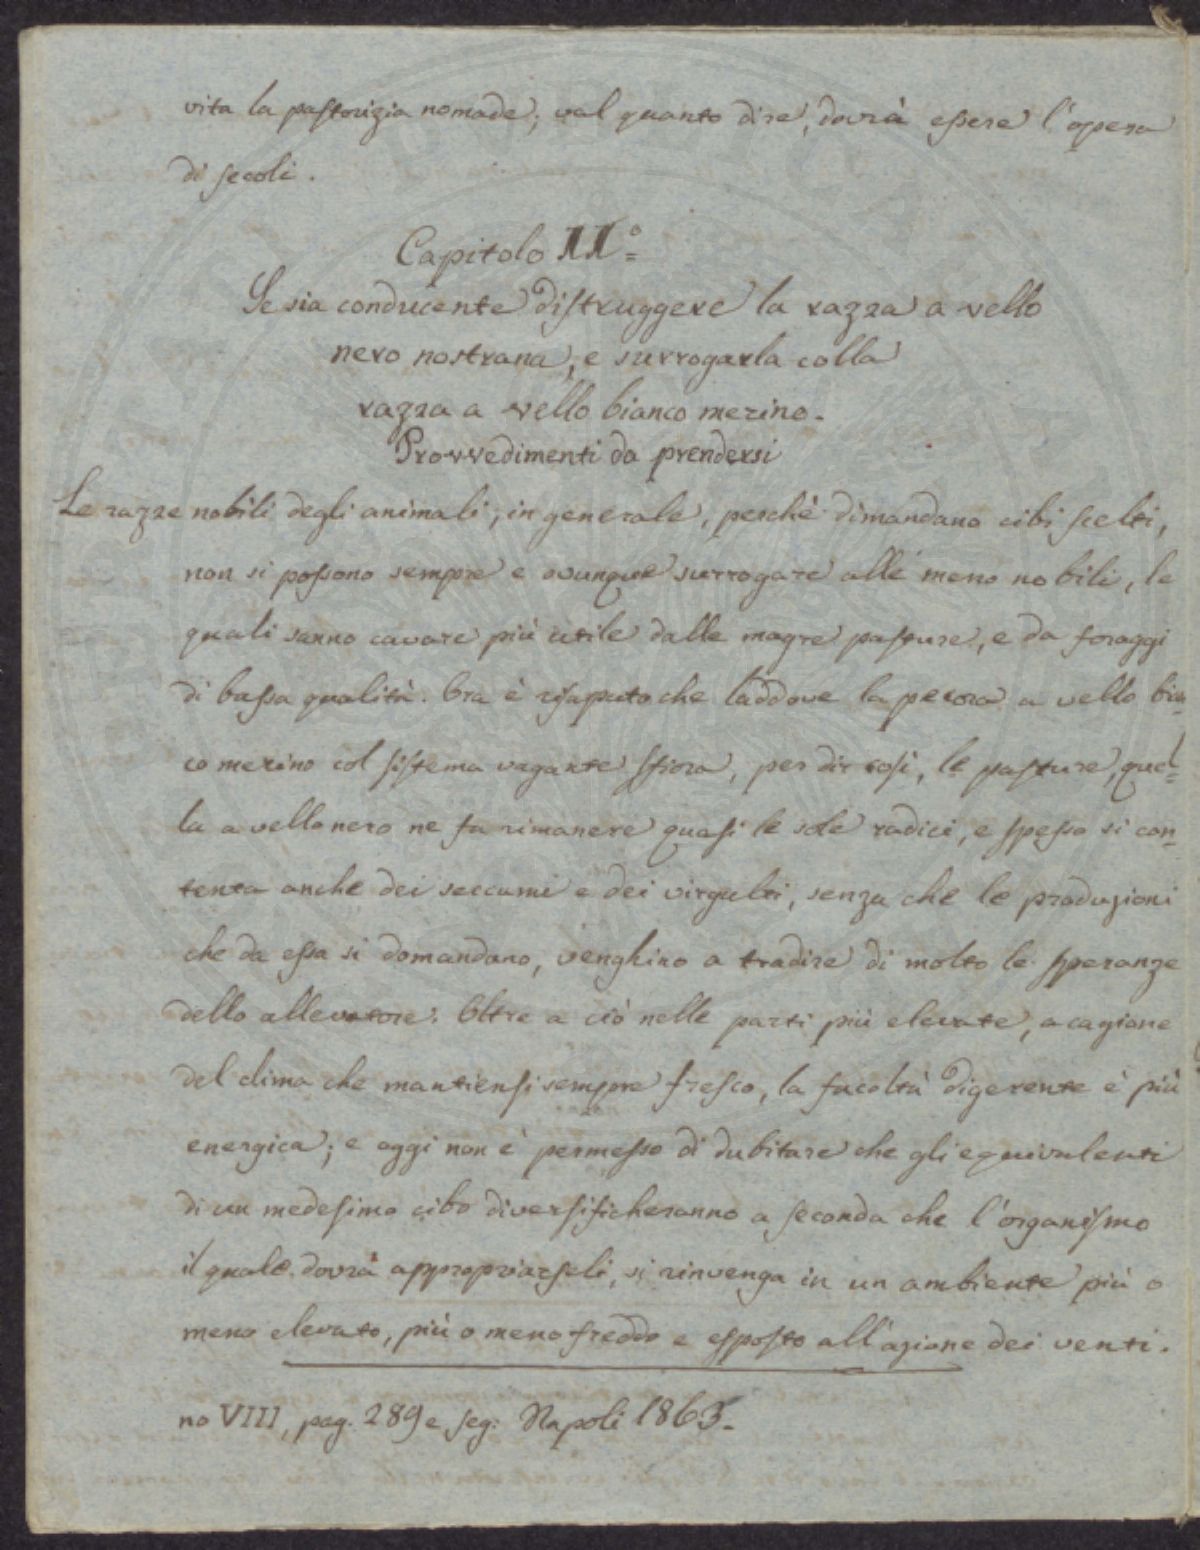 vita la pastorizia nomade; val quanto dire, dovrà essere l'opera
di secoli.
Capitolo II°
Se sia conducente distruggere la razza a vello
nero nostrana, e surrogarla colla
razza a vello bianco merino.
Provvedimenti da prendersi
Le razze nobili degli animali, in generale, perchè dimandano cibi scelti,
non si possono sempre e ovunque surrogare alle meno nobili, le
quali sanno cavare più utile dalle magre pasture, e da foraggi
di bassa qualità. Ora è risaputo che laddove la pecora a vello bian-
co merino col sistema vagante sfiora, per dir così, le pasture, quel-
la a vello nero ne fa rimanere quasi le sole radici, e spesso si con-
tenta anche dei seccumi e dei virgulti, senza che le produzioni
che da essa si domandano, venghino a tradire di molto le speranze
dello allevatore. Oltre a ciò nelle parti più elevate, a cagione
del clima che mantiensi sempre fresco, la facoltà digerente è più
energica; e oggi non è permesso di dubitare che gli equivalenti
di un medesimo cibo diversificheranno a seconda che l'organismo
il quale dovrà appropriarseli, si rinvenga in un ambiente più o
meno elevato, più o meno freddo e esposto all'azione dei venti.
no VIII, pag. 289 e seg: Napoli 1863.